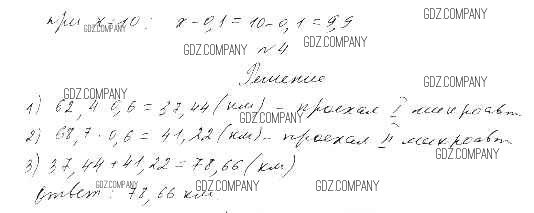 при x = 10 : x - 0,1 = 10 - 0,1 = 9,9
GDZ.COMPANY
GDZ.COMPANY
GDZ.COMPANY
GDZ.COMPANY
№ 4
Решение
GDZ.COMPANY
GDZ.COMPANY
1) 62,4 · 0,6 = 37,44 (км) - проехал I микроавт.
GDZ.COMPANY
2) 68,7 · 0,6 = 41,22 (км) - проехал II микроавт.
GDZ.COMPANY
3) 37,44 + 41,22 = 78,66 (км)
Ответ: 78,66 км.
GDZ.COMPANY
GDZ.COMPANY
GDZ.COMPANY